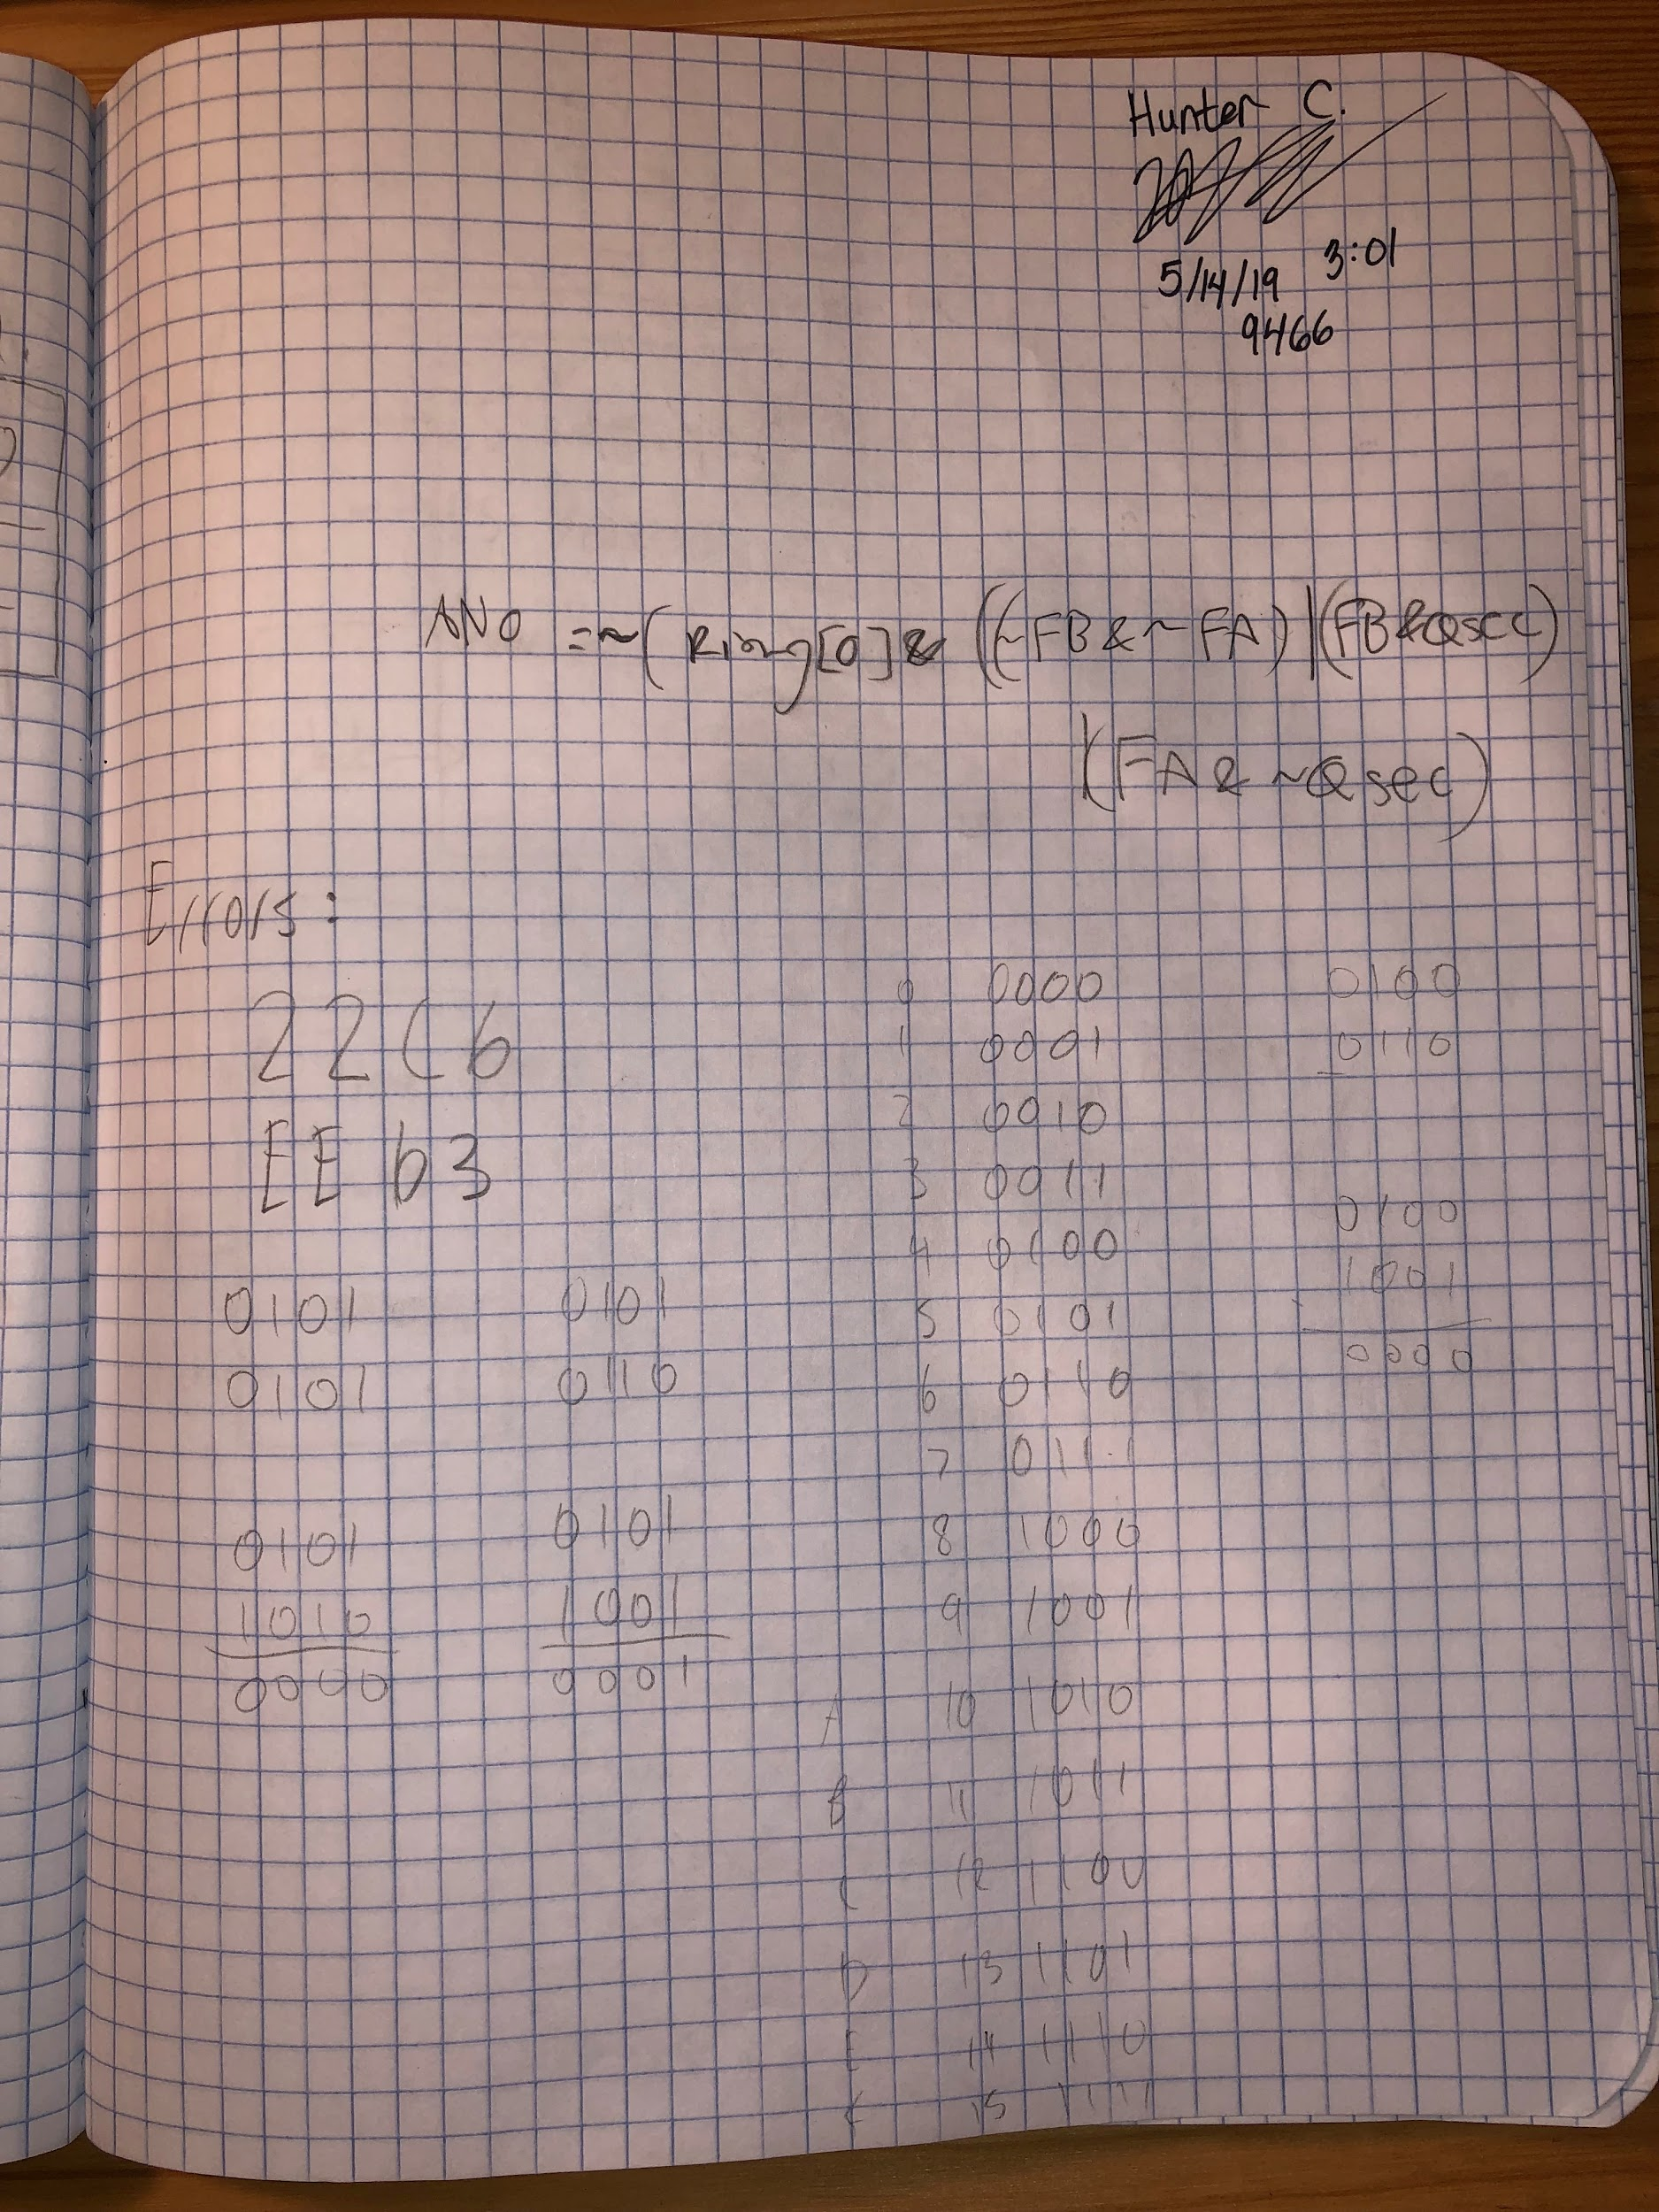 Hunter C.
5/14/19 3:01
9466
AN0 =~(Ring[0]& ((~FB&~FA)|(FB&Qsec)
|(FA&~Qsec)
Errors:
22C6
EEb3
0101 0101
0101 0110
0101 0101
1010 1001
0000 0001
0 0000
1 0001
2 0010
3 0011
4 0100
5 0101
6 0110
7 0111
8 1000
9 1001
A 10 1010
B 11 1011
C 12 1100
D 13 1101
E 14 1110
F 15 1111
0100
0110
0100
1001
0000